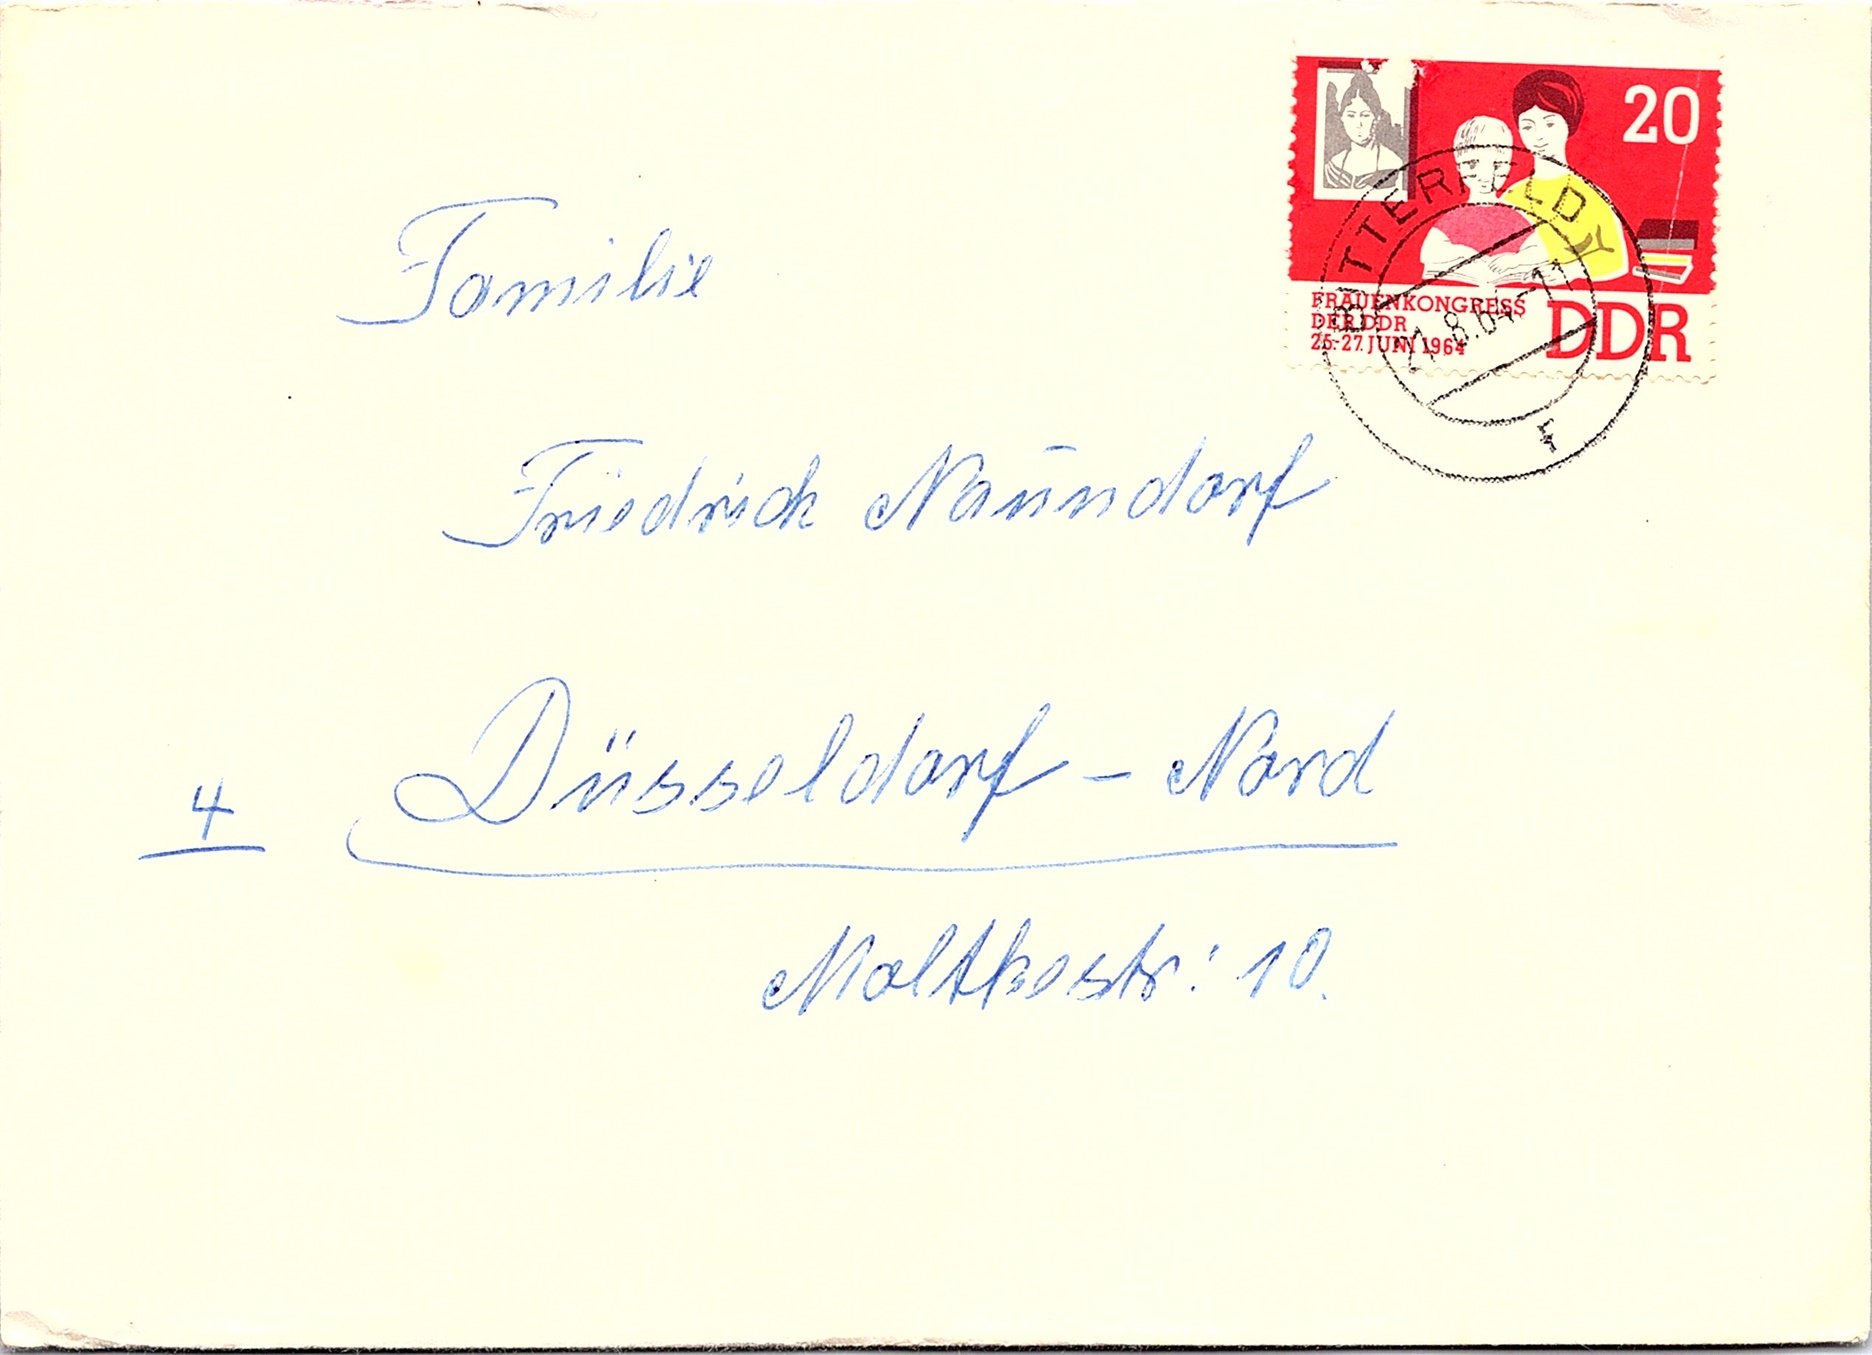 20
FRAUENKONGRESS
DER DDR
25.-27. JUNI 1964
DDR
BITTERFELD
21.8.64-11
Familie
Friedrich Naundorf
4 Düsseldorf - Nord
Moltkestr: 10.